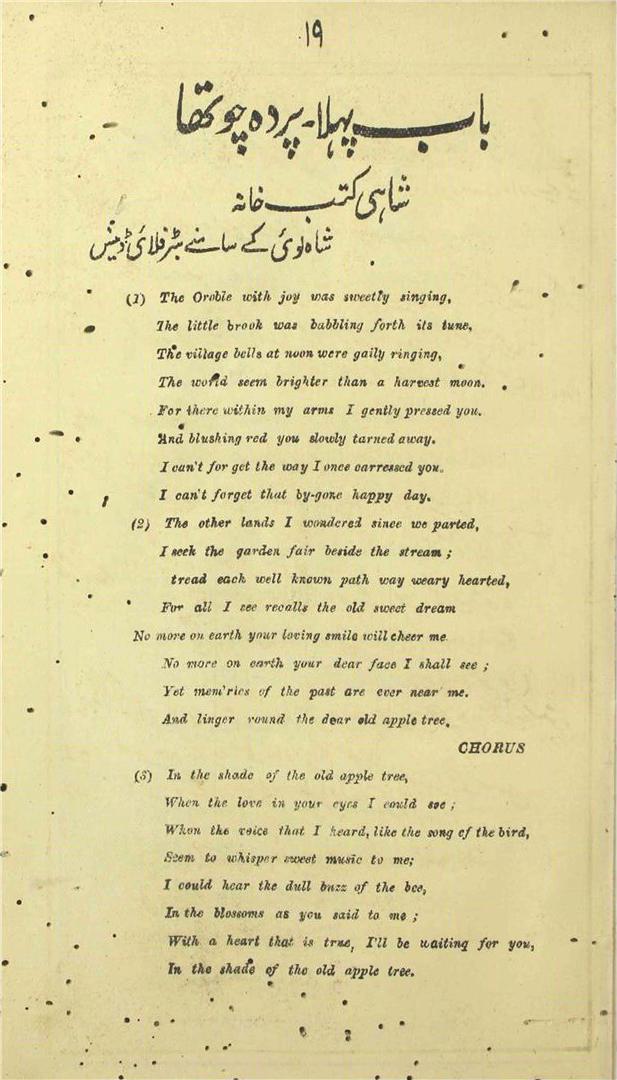 ۱۹
باب پہلا۔ پردہ چوتھا
شاہی کتب خانہ
شاہ لوئی کے سامنے بٹر فلائی ڈینس
(1) The Oroble with joy was sweetly singing,
The little brook was babbling forth its tune,
The village bells at noon were gaily ringing,
The world seem brighter than a harvest moon.
For there within my arms I gently pressed you.
And blushing red you slowly tarned away.
I can't for get the way I once carressed you.
I can't forget that by-gone happy day.
(2) The other lands I wondered since we parted,
I seek the garden fair beside the stream ;
tread each well known path way weary hearted,
For all I see recalls the old sweet dream
No more on earth your loving smile will cheer me.
No more on earth your dear face I shall see ;
Yet mem'ries of the past are ever near me.
And linger round the dear old apple tree.
CHORUS
(3) In the shade of the old apple tree,
When the love in your eyes I could see ;
When the voice that I heard, like the song of the bird,
Seem to whisper sweet music to me;
I could hear the dull buzz of the bee,
In the blossoms as you said to me ;
With a heart that is true, I'll be waiting for you,
In the shade of the old apple tree.